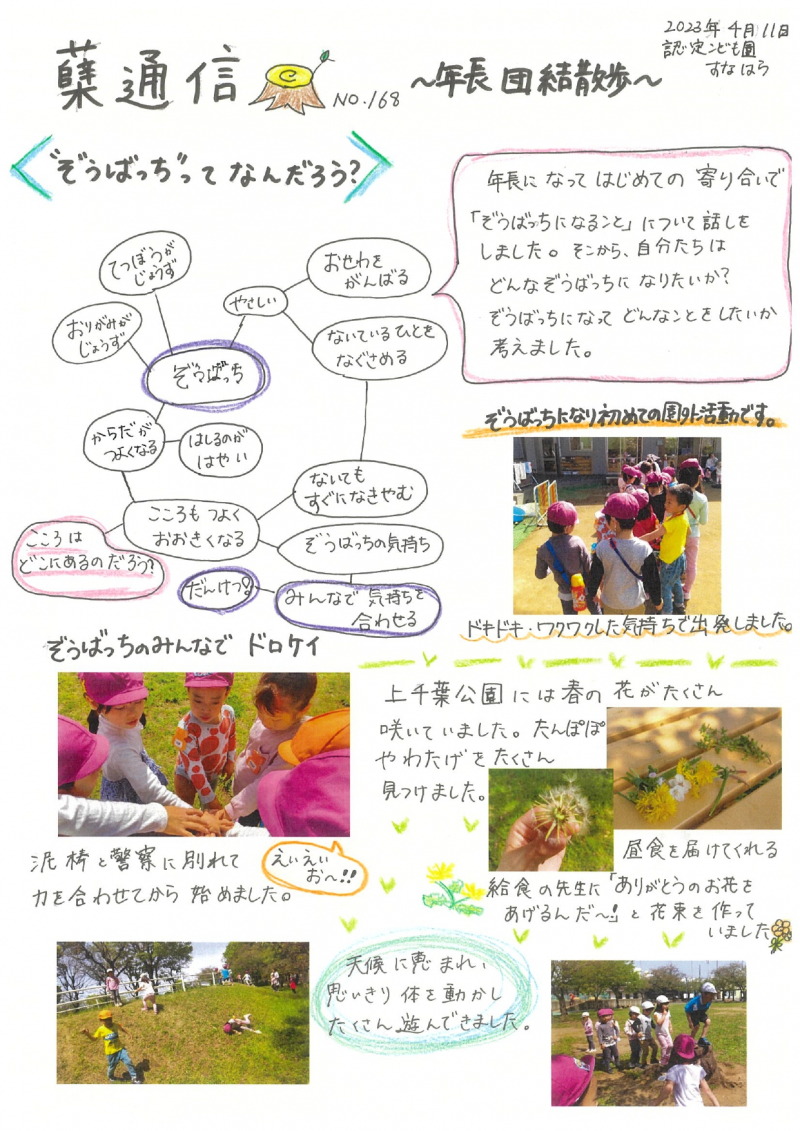 2023年4月11日
認定こども園
すなはら
蘖通信
NO.168
～年長団結散歩～
"ぞうばっち"ってなんだろう?
年長になってはじめての寄り合いで
「ぞうばっちになること」について話しを
しました。そこから、自分たちは
どんなぞうばっちになりたいか?
ぞうばっちになってどんなことをしたいか
考えました。
てつぼうが
じょうず
おりがみが
じょうず
やさしい
おせわを
がんばる
ないているひとを
なぐさめる
ぞうばっち
からだが
つよくなる
はしるのが
はやい
ないても
すぐになきやむ
こころもつよく
おおきくなる
ぞうばっちの気持ち
こころは
どこにあるのだろう?
だんけつ!!
みんなで気持ちを
合わせる
ぞうばっちになり初めての園外活動です。
ドキドキ・ワクワクした気持ちで出発しました。
ぞうばっちのみんなでドロケイ
泥棒と警察に別れて
力を合わせてから始めました。
えいえい
お〜!!
上千葉公園には春の花がたくさん
咲いていました。たんぽぽ
やわたげをたくさん
見つけました。
昼食を届けてくれる
給食の先生に「ありがとうのお花を
あげるんだ〜!」と花束を作って
いました
天候に恵まれ、
思いきり体を動かし
たくさん遊んできました。